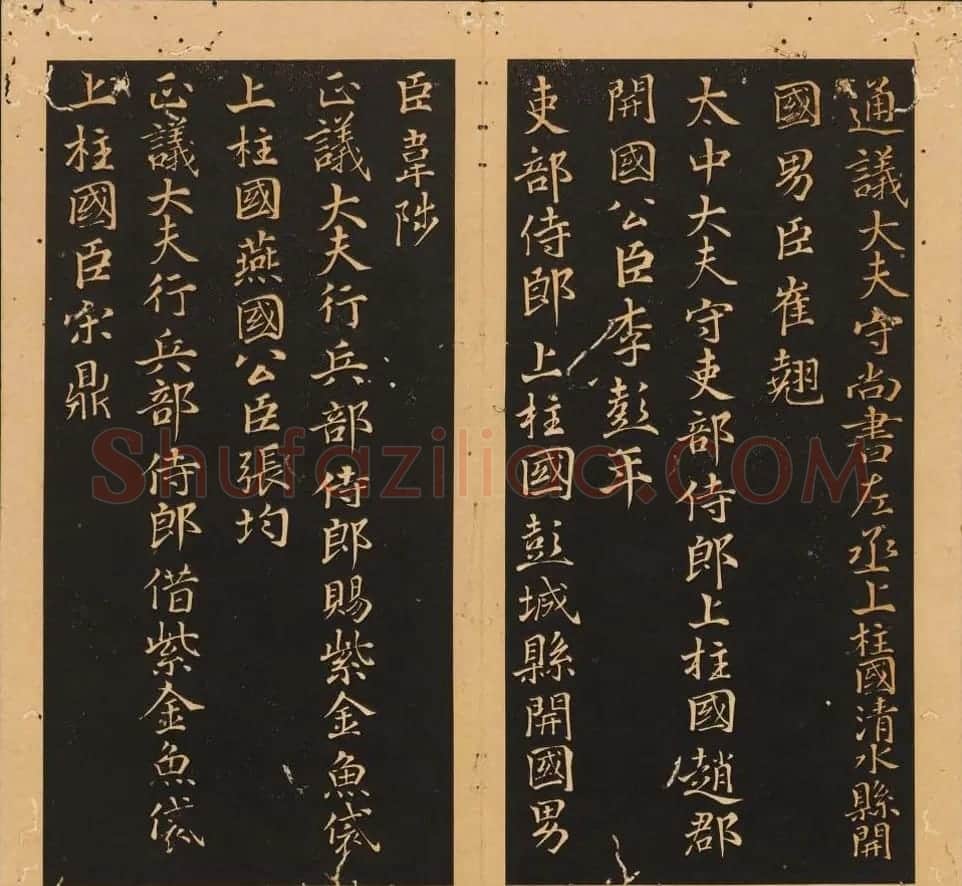 通議大夫守尚書左丞上柱國清水縣開
國男臣崔翹
太中大夫守吏部侍郎上柱國趙郡
開國公臣李彭年
吏部侍郎上柱國彭城縣開國男
臣韋陟
正議大夫行兵部侍郎賜紫金魚袋
上柱國燕國公臣張均
正議大夫行兵部侍郎借紫金魚袋
上柱國臣宋鼎
Shufaziliao.COM